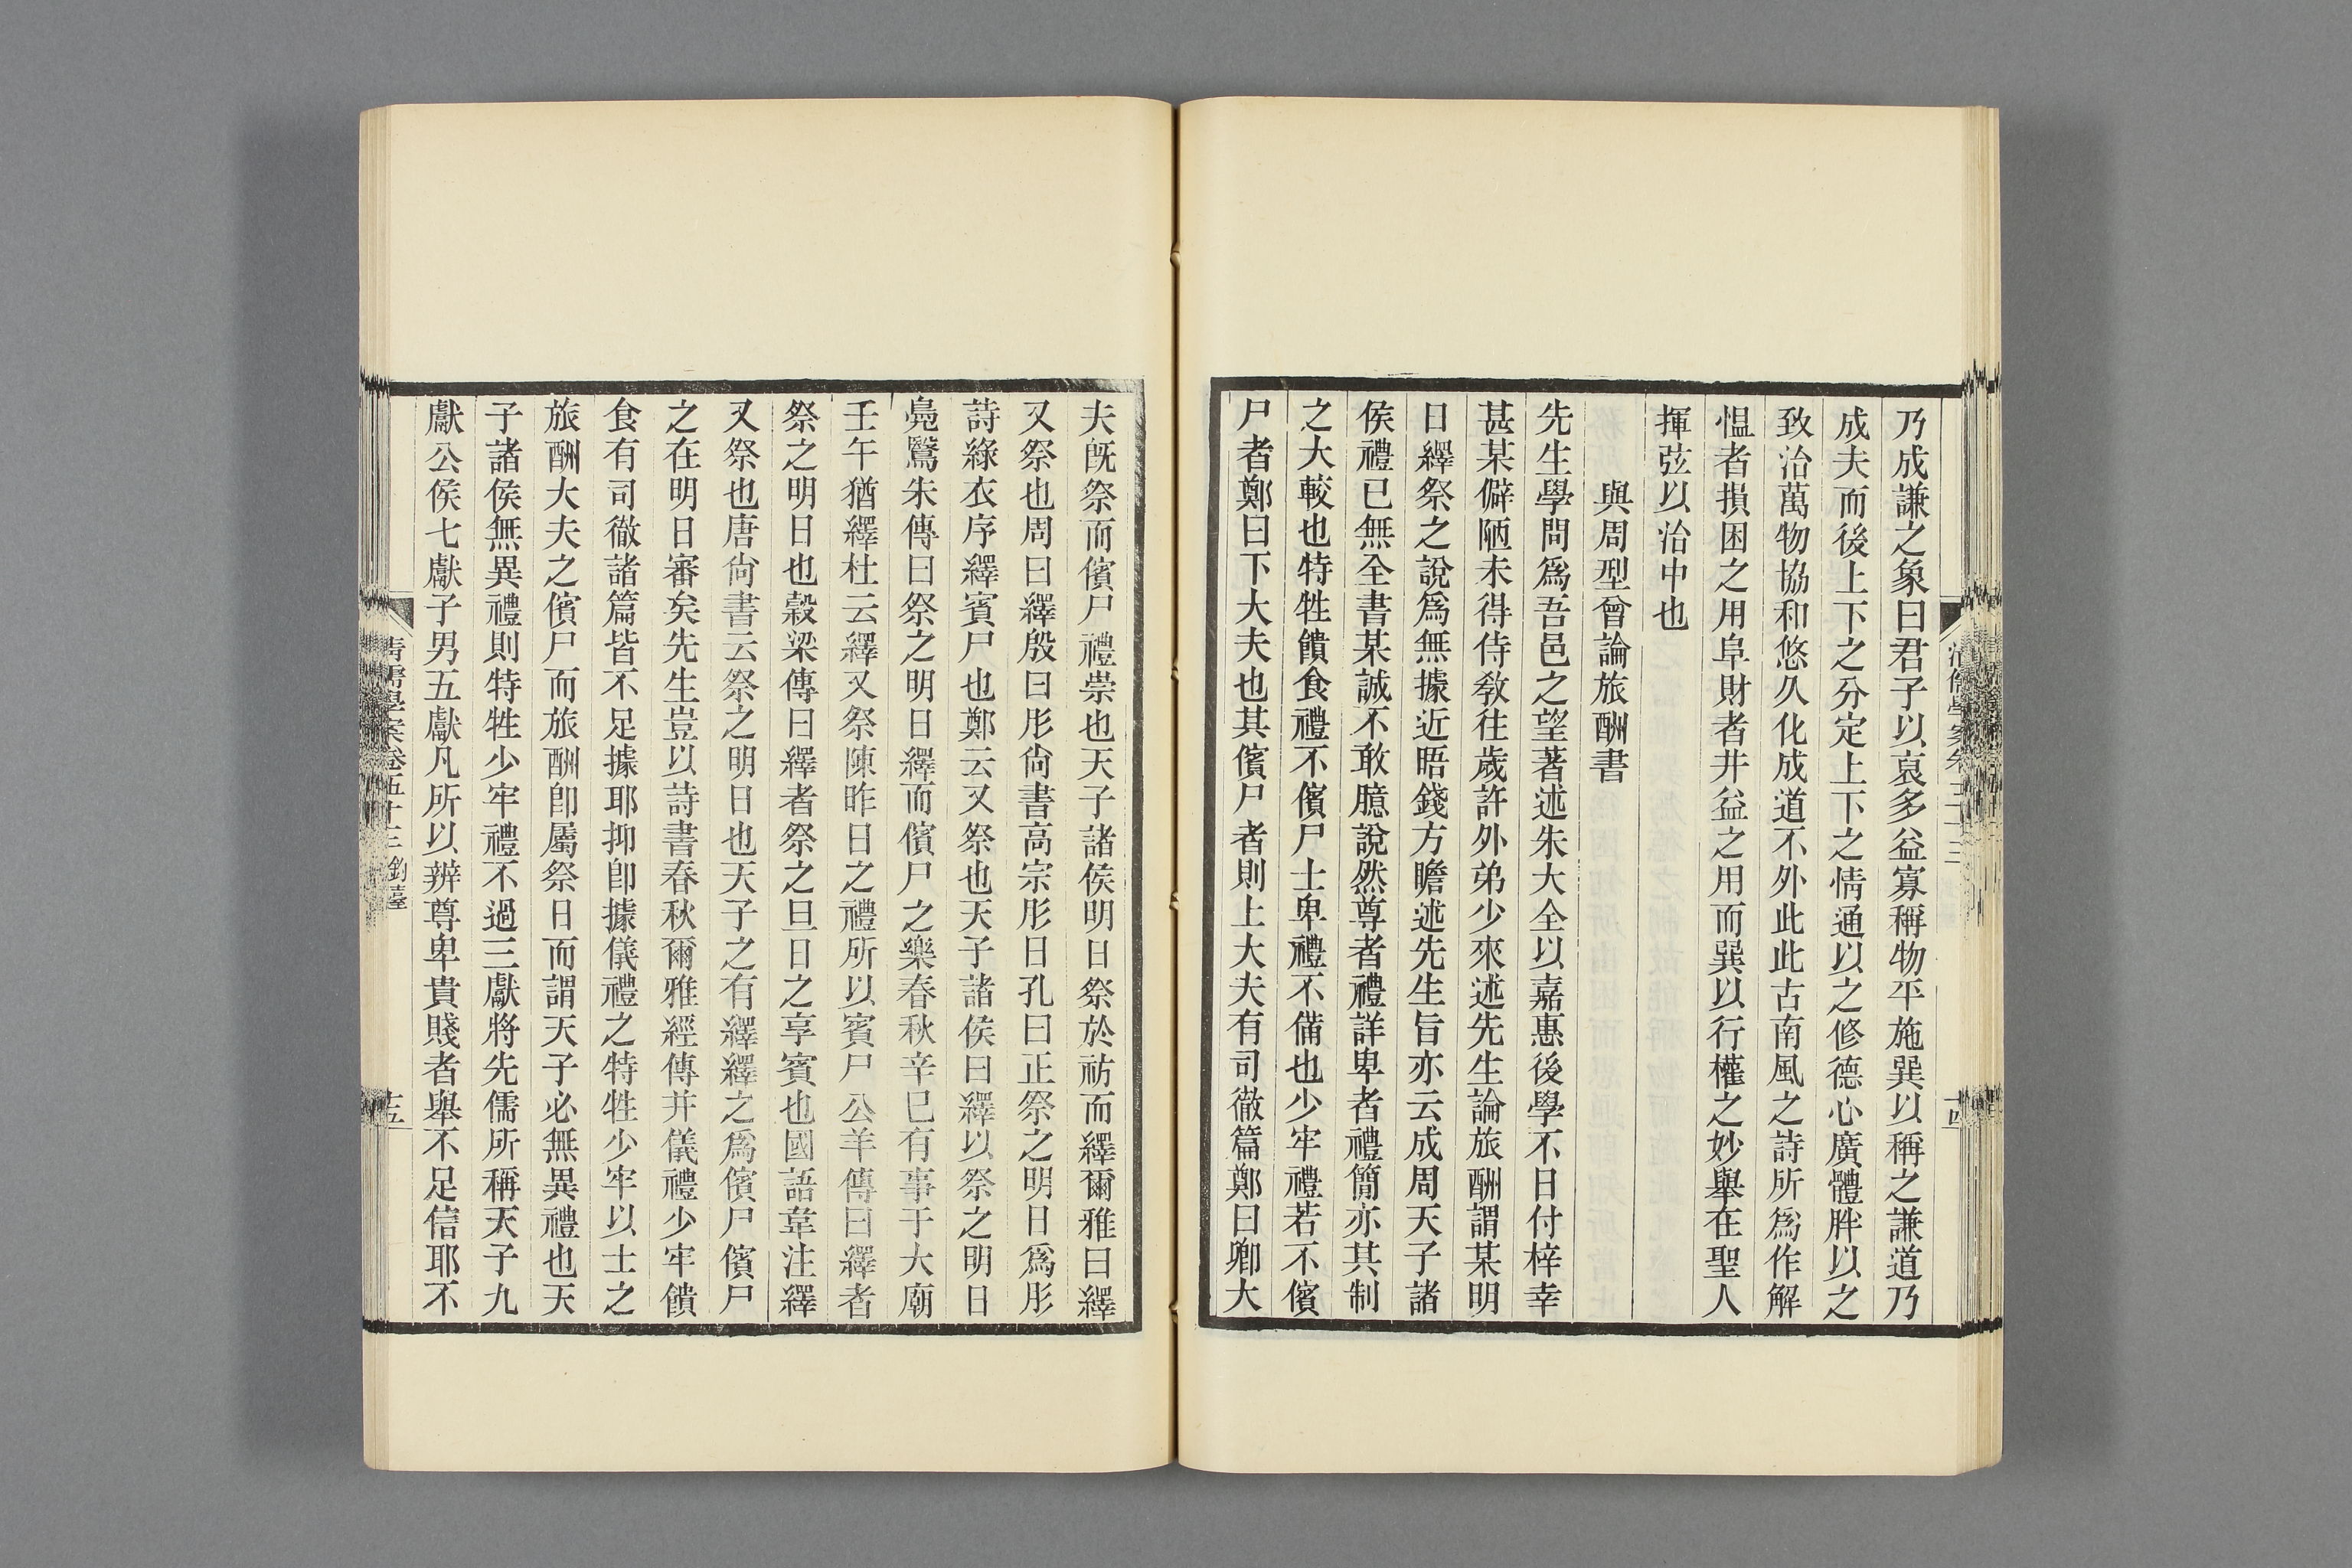 乃成謙之象曰君子以裒多益寡稱物平施巽以稱之謙道乃
成夫而後上下之分定上下之情通以之修德心廣體胖以之
致治萬物協和悠久化成道不外此此古南風之詩所爲作解
愠者損困之用阜財者井益之用而巽以行權之妙舉在聖人
揮弦以治中也
與周型曾論旅酬書
先生學問爲吾邑之望著述朱大全以嘉惠後學不日付梓幸
甚某僻陋未得侍敎往歲許外弟少來述先生論旅酬謂某明
日繹祭之說爲無據近晤錢方瞻述先生旨亦云成周天子諸
侯禮已無全書某誠不敢臆說然尊者禮詳卑者禮簡亦其制
之大較也特牲饋食禮不儐尸士卑禮不備也少牢禮若不儐
尸者鄭曰下大夫也其儐尸者則上大夫有司徹篇鄭曰卿大
夫旣祭而儐尸禮崇也天子諸侯明日祭於祊而繹爾雅曰繹
又祭也周曰繹殷曰肜尙書高宗肜日孔曰正祭之明日爲肜
詩綠衣序繹賓尸也鄭云又祭也天子諸侯曰繹以祭之明日
鳧鷖朱傳曰祭之明日繹而儐尸之樂春秋辛巳有事于大廟
壬午猶繹杜云繹又祭陳昨日之禮所以賓尸公羊傳曰繹者
祭之明日也穀梁傳曰繹者祭之旦日之享賓也國語韋注繹
又祭也唐尙書云祭之明日也天子之有繹繹之爲儐尸儐尸
之在明日審矣先生豈以詩書春秋爾雅經傳并儀禮少牢饋
食有司徹諸篇皆不足據耶抑卽據儀禮之特牲少牢以士之
旅酬大夫之儐尸而旅酬卽屬祭日而謂天子必無異禮也天
子諸侯無異禮則特牲少牢禮不過三獻將先儒所稱天子九
獻公侯七獻子男五獻凡所以辨尊卑貴賤者舉不足信耶不
清儒學案卷五十三 釣臺
十五